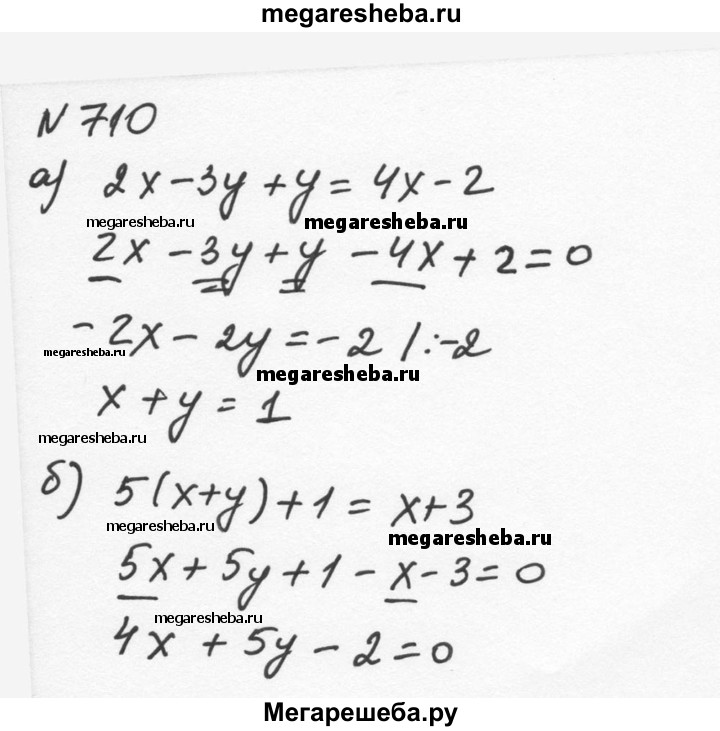 megaresheba.ru
N 710
а) 2x-3y+y=4x-2
megaresheba.ru megaresheba.ru
2x-3y+y-4x+2=0
-2x-2y=-2 /:-2
megaresheba.ru megaresheba.ru
x+y=1
megaresheba.ru
б) 5(x+y)+1=x+3
megaresheba.ru megaresheba.ru
5x+5y+1-x-3=0
megaresheba.ru
4x+5y-2=0
Мегарешеба.ру